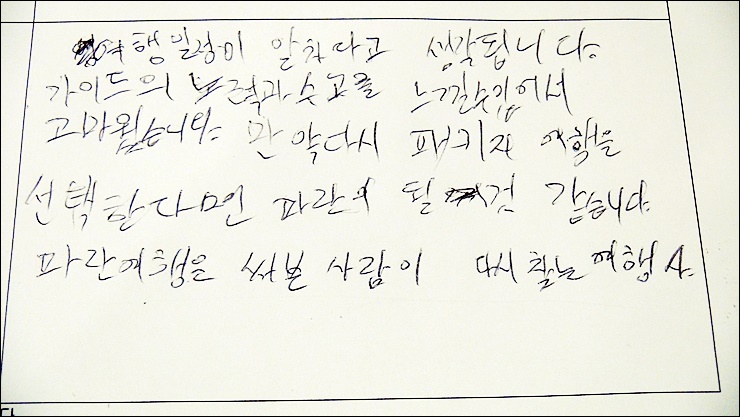 여행일정이 알차다고 생각됩니다.
가이드의 노력과 수고를 느낄수 있어서
고마웠습니다. 만약 다시 패키지 여행을
선택한다면 파란이 될 것 같습니다.
파란여행은 써본 사람이 다시 찾는 여행사.